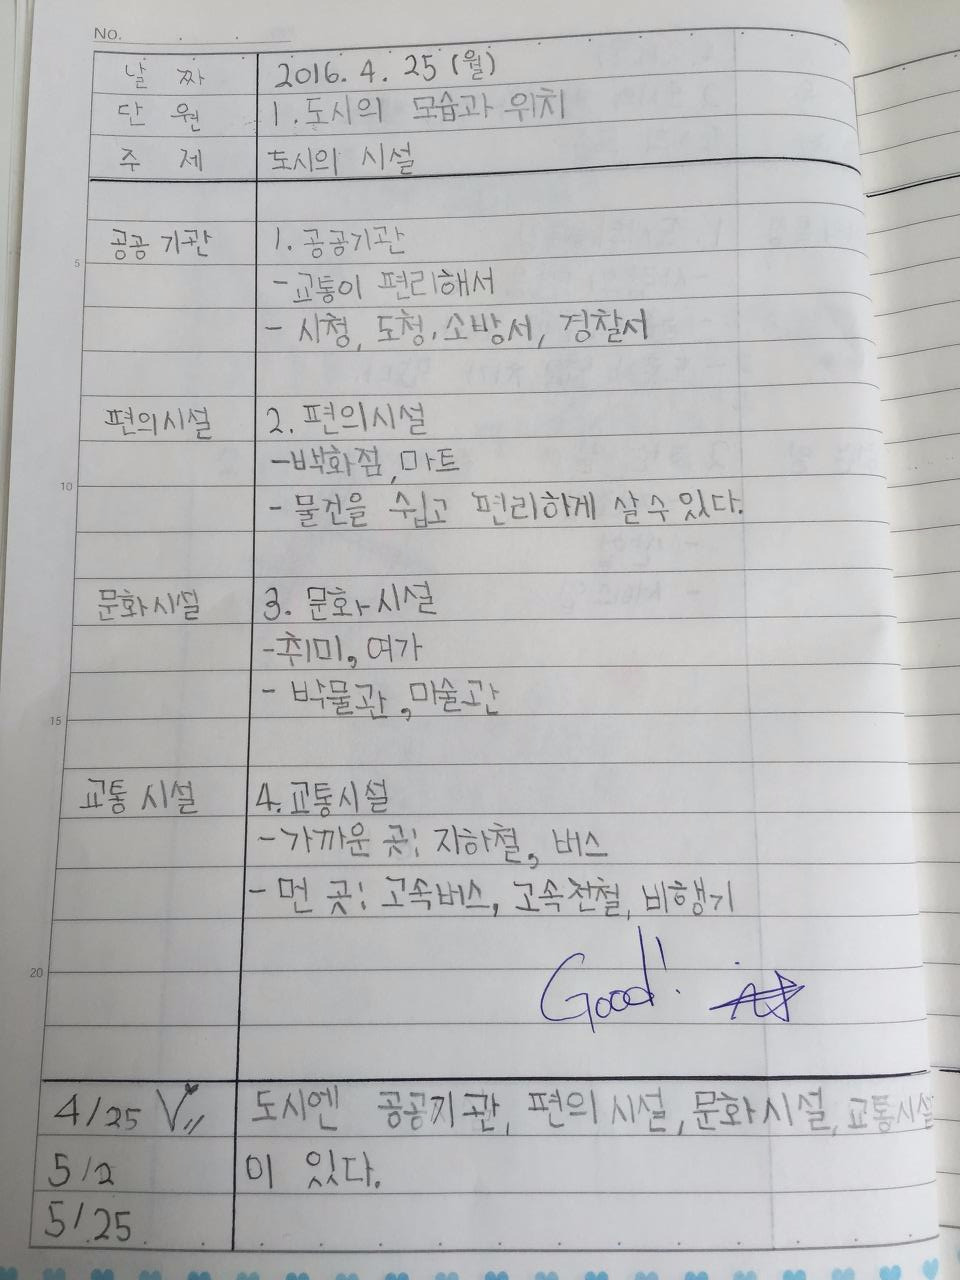 No.
날 짜 2016. 4. 25 (월)
단 원 1. 도시의 모습과 위치
주 제 도시의 시설
공공 기관 1. 공공기관
5 - 교통이 편리해서
- 시청, 도청, 소방서, 경찰서
편의시설 2. 편의시설
- 백화점, 마트
10 - 물건을 쉽고 편리하게 살 수 있다.
문화시설 3. 문화시설
- 취미, 여가
- 박물관, 미술관
15
교통 시설 4. 교통시설
- 가까운 곳: 지하철, 버스
- 먼 곳: 고속버스, 고속전철, 비행기
20 Good!
4/25 도시엔 공공기관, 편의시설, 문화시설, 교통시설
5/2 이 있다.
5/25